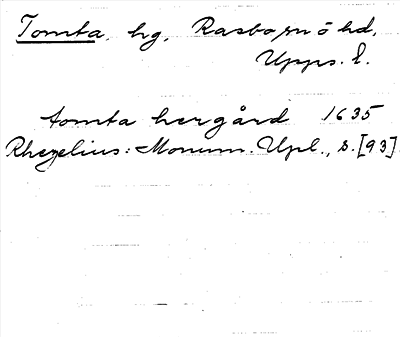 Tomta, hg, Rasbo, sn ö hd,
Upps. l.
tomta hergård 1635
Rhezelius: Monum. Upl., s. [93]